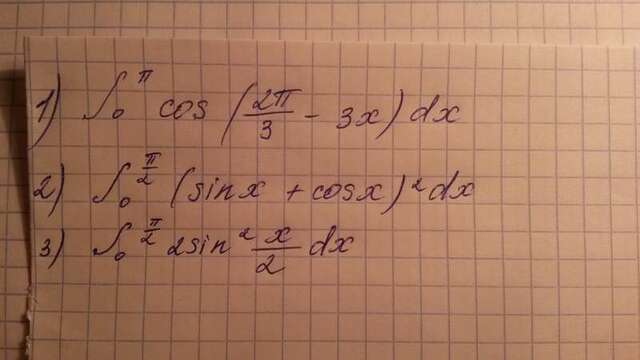 1) ∫₀^π cos (2π/3 - 3x) dx
2) ∫₀^(π/2) (sinx + cosx)² dx
3) ∫₀^(π/2) 2sin² x/2 dx